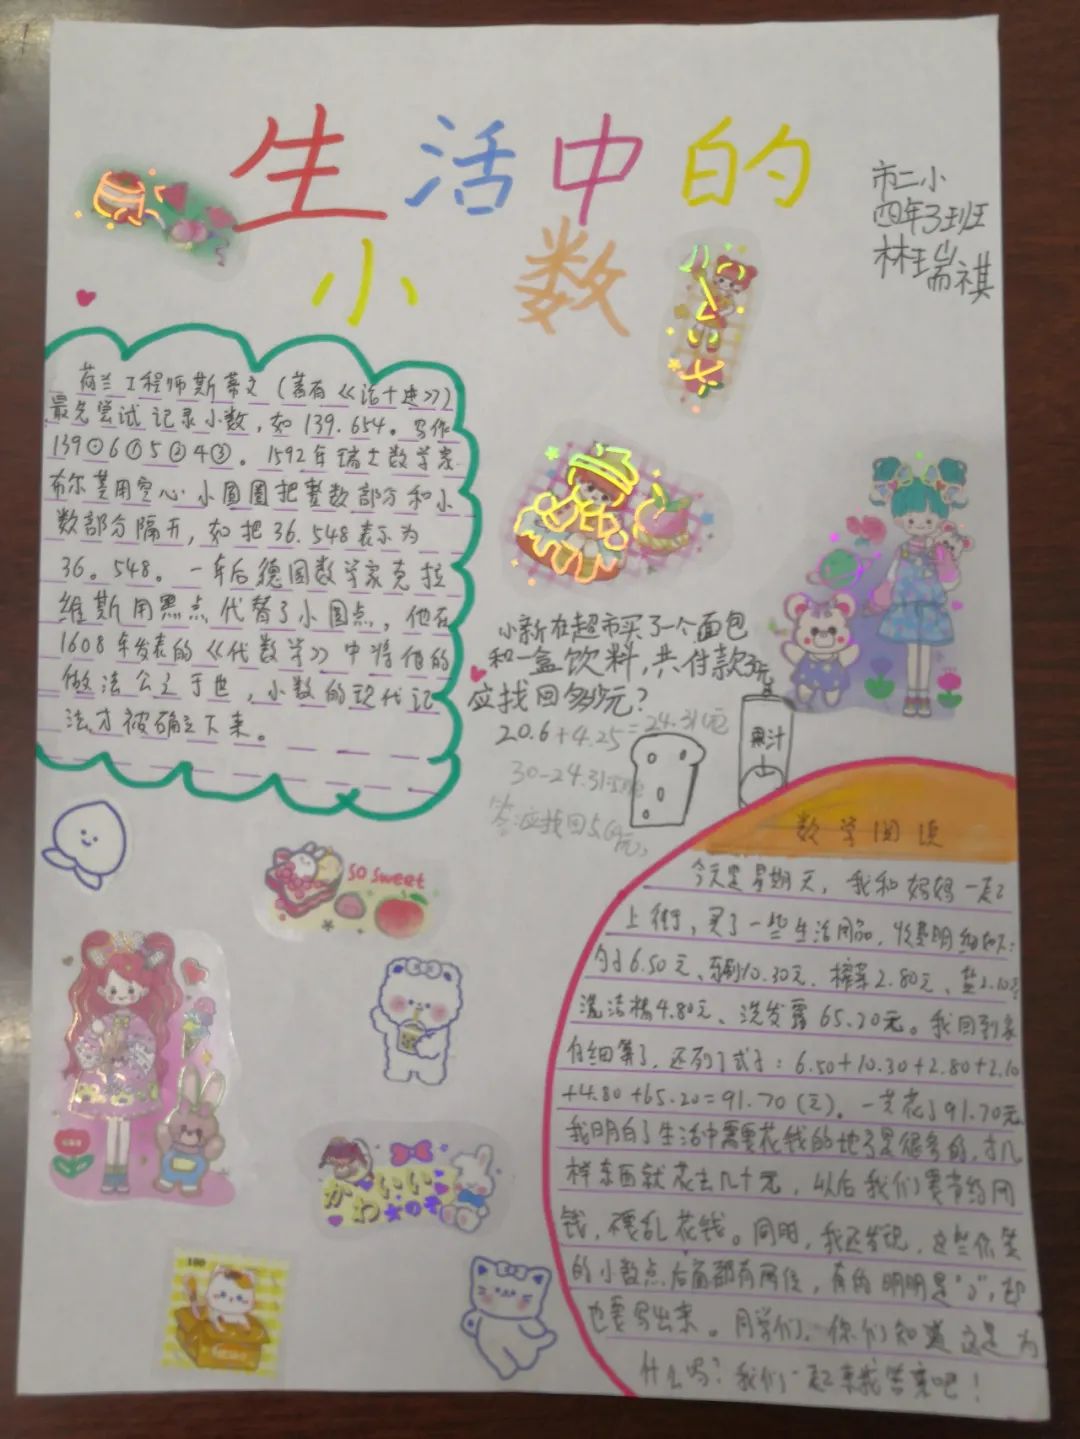 生活中的
小数
市二小
四年3班
林瑞祺
荷兰工程师斯蒂文(著有《论十进》)
最先尝试记录小数,如139.654。写作
139⊙6①5②4③。1592年瑞士数学家
布尔基用空心小圆圈把整数部分和小
数部分隔开,如把36.548表示为
36。548。一年后德国数学家克拉
维斯用黑点代替了小圆点,他在
1608年发表的《代数学》中将他的
做法公之于世,小数的现代记
法才被确立下来。
小新在超市买了一个面包
和一盒饮料,共付款30元
应找回多少元?
20.6+4.25=24.31
30-24.31
答:应找回5.69元。
果汁
so sweet
かわいい
100
数学阅读
今天是星期天,我和妈妈一起
上街,买了一些生活用品,收费明细如下:
6.50元、牙刷10.30元、榨菜2.80元、盐2.10元
洗洁精4.80元、洗发露65.20元。我回到家
仔细算了,还列了式子:6.50+10.30+2.80+2.10
+4.80+65.20=91.70(元)。一共花了91.70元
我明白了生活中需要花钱的地方是很多的,才几
样东西就花去几十元,以后我们要节约用
钱,不要乱花钱。同时,我还发现,这些价签
的小数点后面都有两位,有的明明是"0",却
也要写出来。同学们,你们知道这是为
什么吗?我们一起来找答案吧!